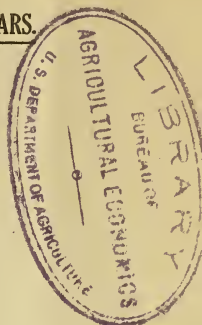 ARS.
LIBRARY
BUREAU OF
AGRICULTURAL ECONOMICS
U. S. DEPARTMENT OF AGRICULTURE